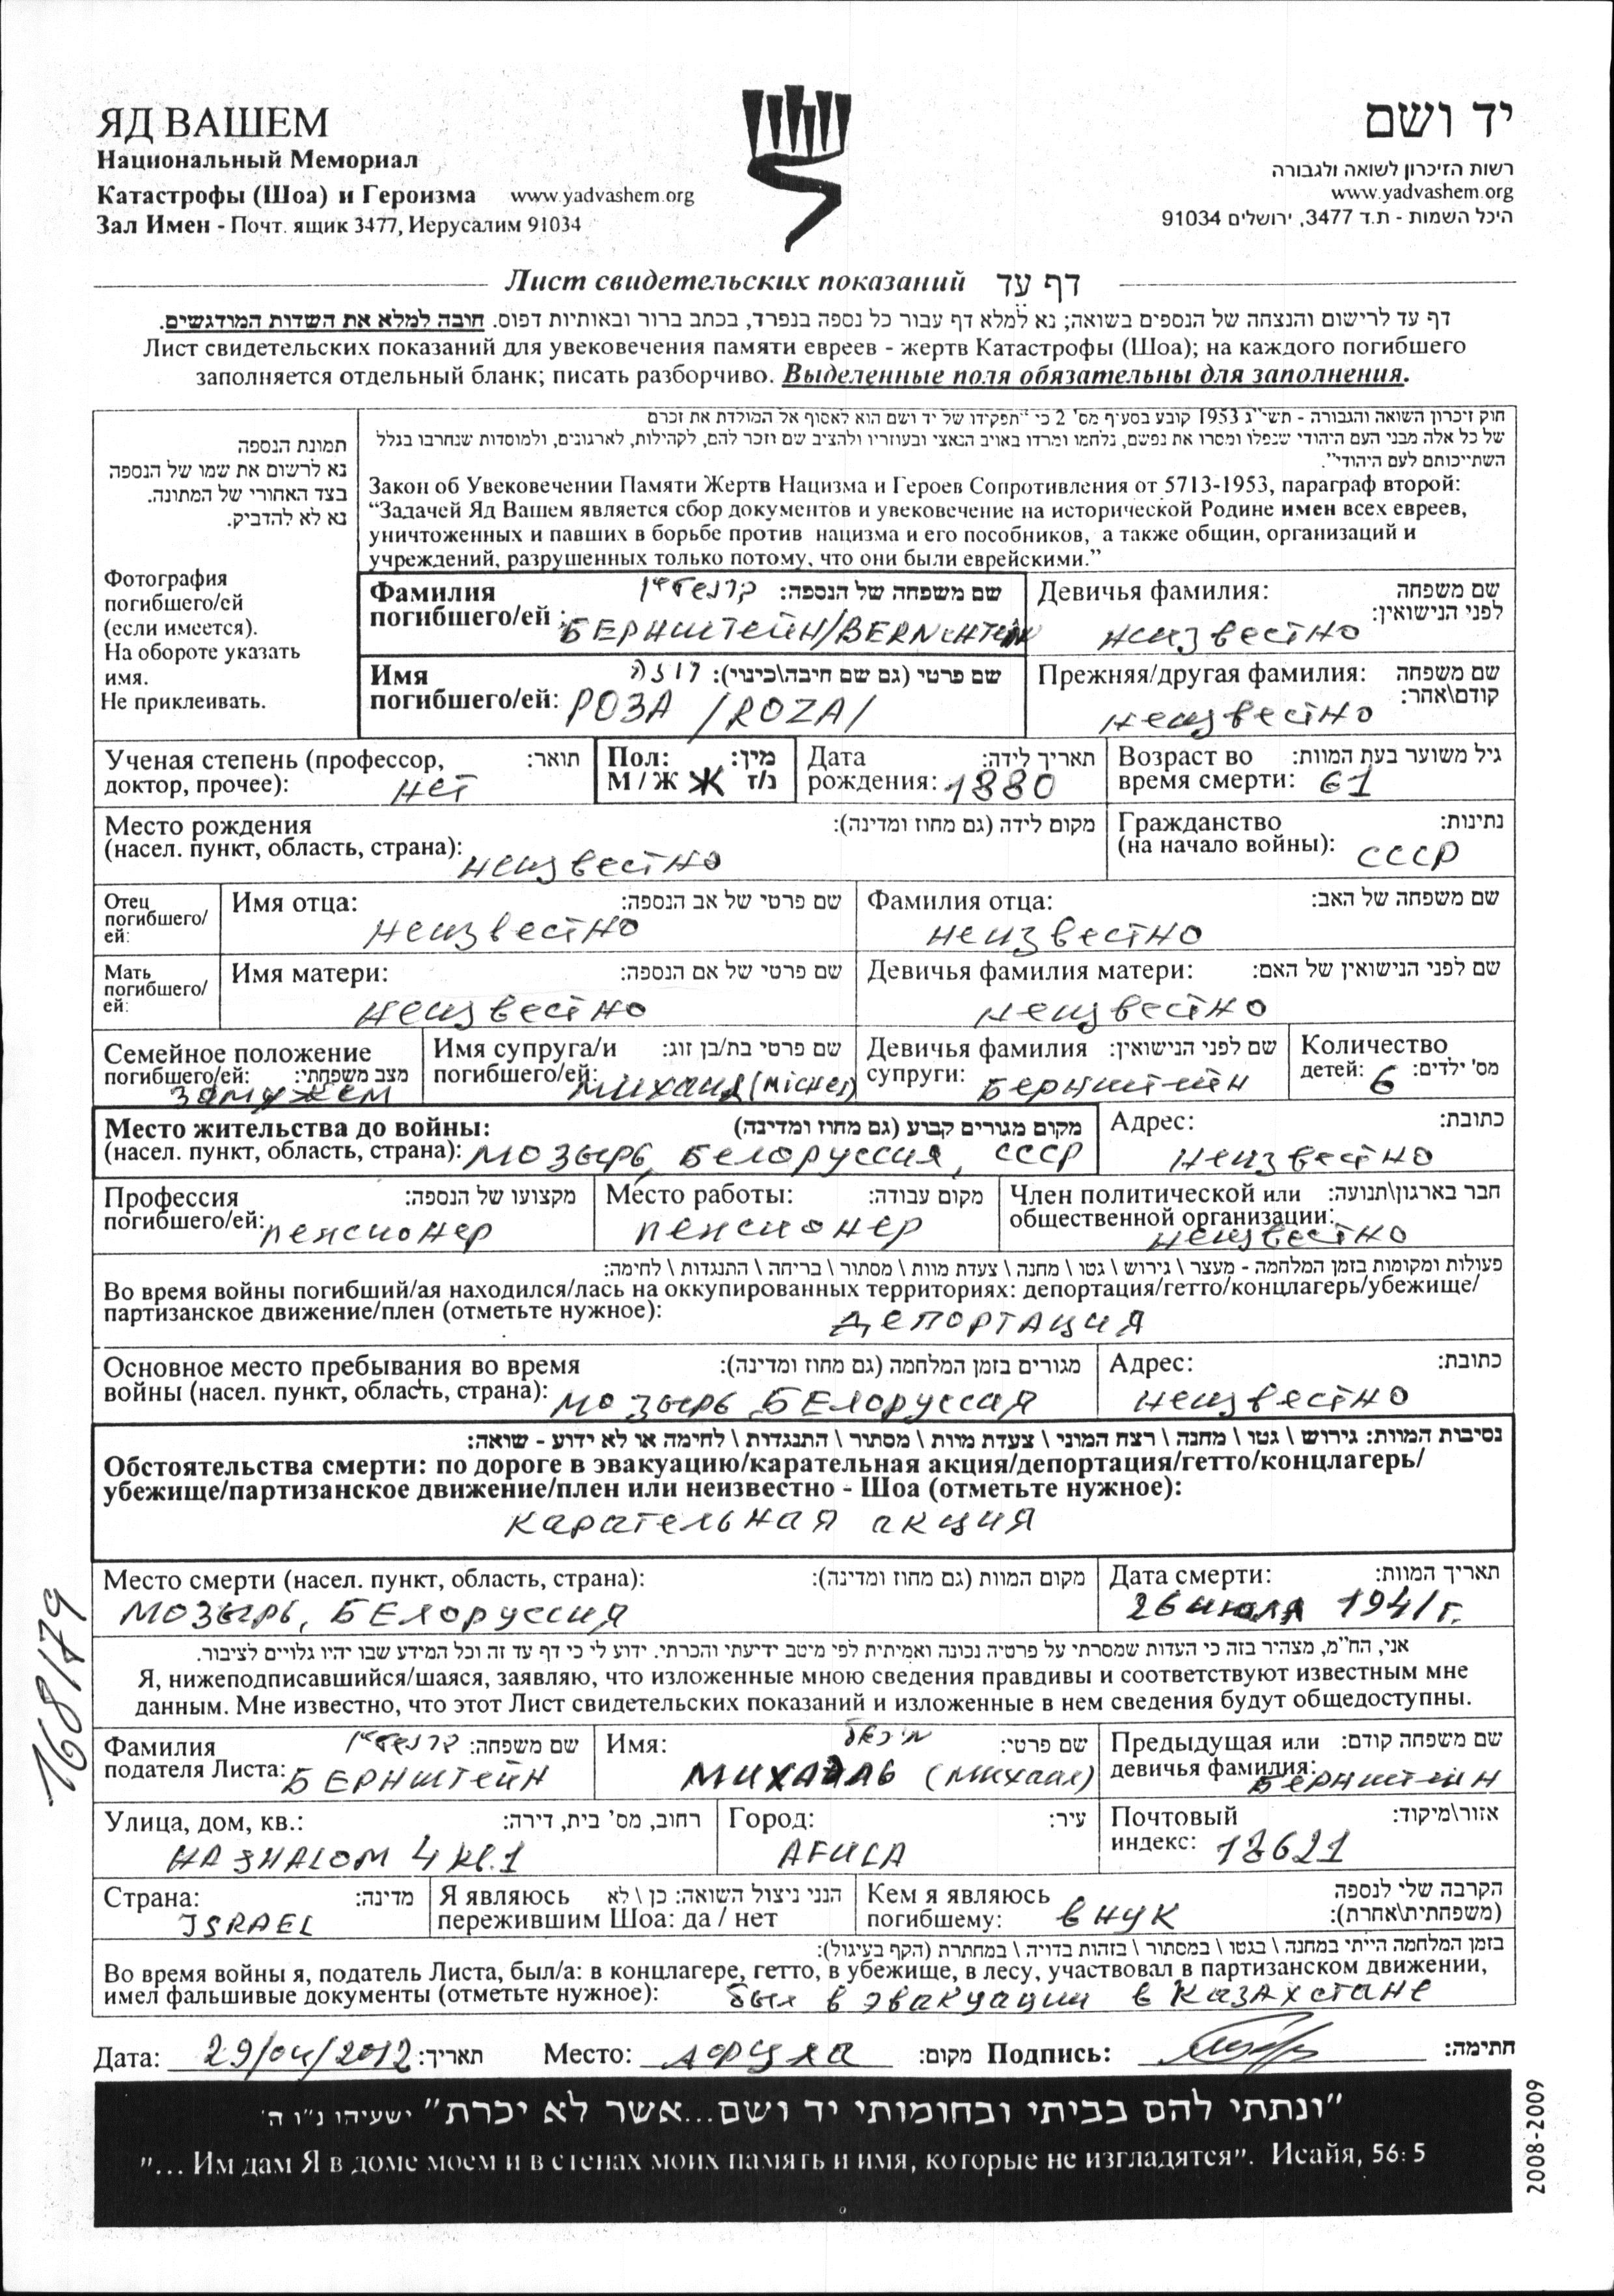 ЯД ВАШЕМ
Национальный Мемориал
Катастрофы (Шоа) и Героизма www.yadvashem.org
Зал Имен - Почт. ящик 3477, Иерусалим 91034
יד ושם
רשות הזיכרון לשואה ולגבורה
www.yadvashem.org
היכל השמות - ת.ד 3477, ירושלים 91034
Лист свидетельских показаний דף עד
דף עד לרישום והנצחה של הנספים בשואה; נא למלא דף עבור כל נספה בנפרד, בכתב ברור ובאותיות דפוס. חובה למלא את השדות המודגשים.
Лист свидетельских показаний для увековечения памяти евреев - жертв Катастрофы (Шоа); на каждого погибшего
заполняется отдельный бланк; писать разборчиво. Выделенные поля обязательны для заполнения.
תמונת הנספה
נא לרשום את שמו של הנספה
בצד האחורי של התמונה.
נא לא להדביק.
Фотография
погибшего/ей
(если имеется).
На обороте указать
имя.
Не приклеивать.
חוק זיכרון השואה והגבורה - תשי"ג 1953 קובע בסעיף מס' 2 כי "תפקידו של יד ושם הוא לאסוף אל המולדת את זכרם
של כל אלה מבני העם היהודי שנפלו ומסרו את נפשם, נלחמו ומרדו באויב הנאצי ובעוזריו ולהציב שם וזכר להם, לקהילות, לארגונים, ולמוסדות שנחרבו בגלל
השתייכותם לעם היהודי".
Закон об Увековечении Памяти Жертв Нацизма и Героев Сопротивления от 5713-1953, параграф второй:
“Задачей Яд Вашем является сбор документов и увековечение на исторической Родине имен всех евреев,
уничтоженных и павших в борьбе против нацизма и его пособников, а также общин, организаций и
учреждений, разрушенных только потому, что они были еврейскими.”
Фамилия שם משפחה של הנספה: ברנשטיין
погибшего/ей: БЕРНШТЕЙН/BERNSHTEIN
Девичья фамилия: שם משפחה לפני הנישואין:
неизвестно
Имя שם פרטי (גם שם חיבה\כינוי): רוזה
погибшего/ей: РОЗА /ROZA/
Прежняя/другая фамилия: שם משפחה קודם\אחר:
неизвестно
Ученая степень (профессор, תואר:
доктор, прочее): нет
Пол: מין:
М / Ж Ж ז/נ
Дата תאריך לידה:
рождения: 1880
Возраст во גיל משוער בעת המוות:
время смерти: 61
Место рождения מקום לידה (גם מחוז ומדינה):
(насел. пункт, область, страна): неизвестно
Гражданство נתינות:
(на начало войны): СССР
Отец
погибшего/
ей:
Имя отца: שם פרטי של אב הנספה:
неизвестно
Фамилия отца: שם משפחה של האב:
неизвестно
Мать
погибшего/
ей:
Имя матери: שם פרטי של אם הנספה:
неизвестно
Девичья фамилия матери: שם לפני הנישואין של האם:
неизвестно
Семейное положение
погибшего/ей: מצב משפחתי:
замужем
Имя супруга/и שם פרטי בת/בן זוג:
погибшего/ей:
Девичья фамилия שם לפני הנישואין:
супруги: Бернштейн
Количество
детей: 6 מס' ילדים:
Место жительства до войны: מקום מגורים קבוע (גם מחוז ומדינה)
(насел. пункт, область, страна): Мозырь, Белоруссия, СССР
Адрес: כתובת:
неизвестно
Профессия מקצועו של הנספה:
погибшего/ей: пенсионер
Место работы: מקום עבודה:
пенсионер
Член политической или חבר בארגון\תנועה:
общественной организации:
неизвестно
פעולות ומקומות בזמן המלחמה - מעצר \ גירוש \ גטו \ מחנה \ צעדת מוות \ מסתור \ בריחה \ התנגדות \ לחימה:
Во время войны погибший/ая находился/лась на оккупированных территориях: депортация/гетто/концлагерь/убежище/
партизанское движение/плен (отметьте нужное): ДЕПОРТАЦИЯ
Основное место пребывания во время מגורים בזמן המלחמה (גם מחוז ומדינה):
войны (насел. пункт, область, страна): Мозырь БЕлоруссия
Адрес: כתובת:
неизвестно
נסיבות המוות: גירוש \ גטו \ מחנה \ רצח המוני \ צעדת מוות \ מסתור \ התנגדות \ לחימה או לא ידוע - שואה:
Обстоятельства смерти: по дороге в эвакуацию/карательная акция/депортация/гетто/концлагерь/
убежище/партизанское движение/плен или неизвестно - Шоа (отметьте нужное):
карательная акция
Место смерти (насел. пункт, область, страна): מקום המוות (גם מחוז ומדינה):
Мозырь, БЕлоруссия
Дата смерти: תאריך המוות:
26 июля 1941 г.
אני, הח"מ, מצהיר בזה כי העדות שמסרתי על פרטיה נכונה ואמיתית לפי מיטב ידיעתי והכרתי. ידוע לי כי דף עד זה וכל המידע שבו יהיו גלויים לציבור.
Я, нижеподписавшийся/шаяся, заявляю, что изложенные мною сведения правдивы и соответствуют известным мне
данным. Мне известно, что этот Лист свидетельских показаний и изложенные в нем сведения будут общедоступны.
Фамилия שם משפחה: ברנשטיין
подателя Листа: БЕРНШТЕЙН
Имя: שם פרטי: מיכאל
(Михаил)
Предыдущая или שם משפחה קודם:
девичья фамилия: Бернштейн
Улица, дом, кв.: רחוב, מס' בית, דירה:
HASHALOM 4 кв.1
Город: עיר:
AFULA
Почтовый אזור\מיקוד:
индекс: 18621
Страна: מדינה:
ISRAEL
Я являюсь הנני ניצול השואה: כן \ לא
пережившим Шоа: да / нет
Кем я являюсь הקרבה שלי לנספה
погибшему: внук (משפחתית\אחרת):
בזמן המלחמה הייתי במחנה \ בגטו \ במסתור \ בזהות בדויה \ במחתרת (הקף בעיגול):
Во время войны я, податель Листа, был/а: в концлагере, гетто, в убежище, в лесу, участвовал в партизанском движении,
имел фальшивые документы (отметьте нужное): был в эвакуации в Казахстане
Дата: 29/04/2012 תאריך: Место: Афула מקום: Подпись: חתימה:
"ונתתי להם בביתי ובחומותי יד ושם...אשר לא יכרת" ישעיהו נ"ו ה'
"... Им дам Я в доме моем и в стенах моих память и имя, которые не изгладятся”. Исайя, 56: 5
168179
2008-2009